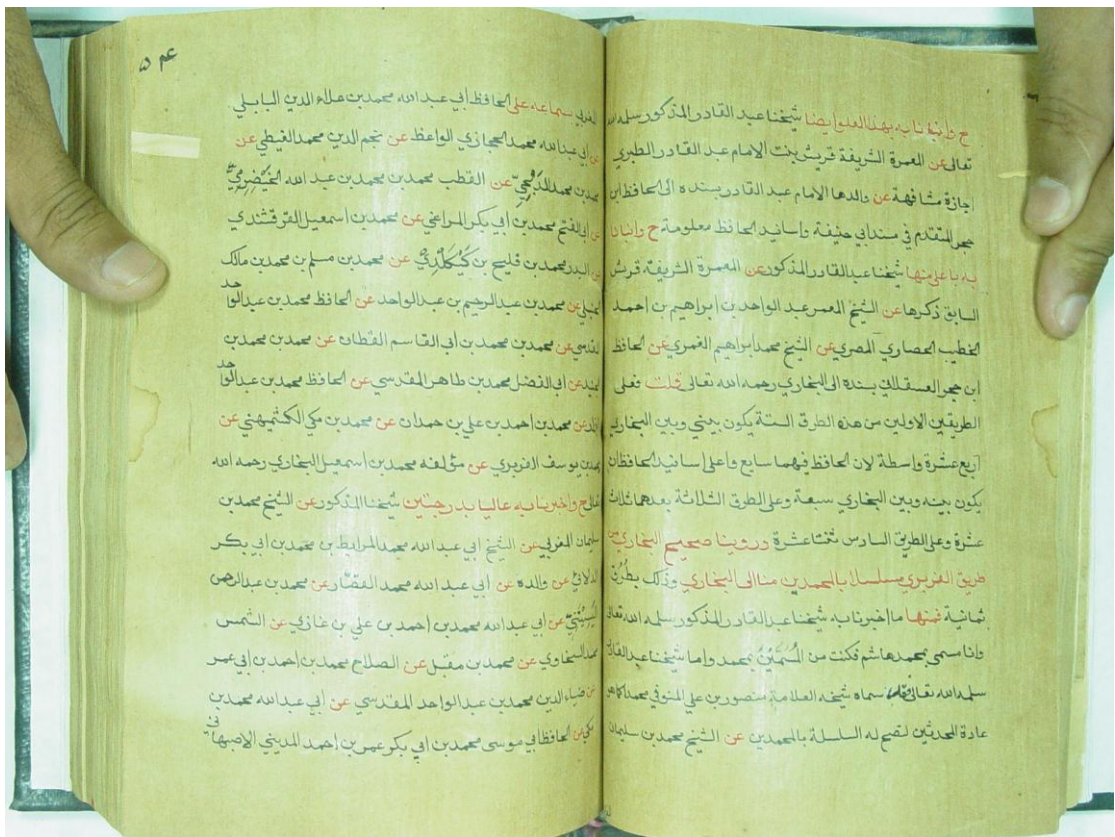 ح وأنبأنا به بهذا العلو ايضا شيخنا عبد القادر المذكور سلمه الله
تعالى عن المعمرة الشريفة قريش بنت الامام عبد القادر الطبري
اجازة مشافهة عن والدها الامام عبد القادر بسنده الى الحافظ ابن
حجر المتقدم في مسند ابي حنيفة واسانيد الحافظ معلومة ح وانبانا
به باعلى منها شيخنا عبد القادر المذكور عن المعمرة الشريفة قريش
السابق ذكرها عن الشيخ المعمر عبد الواحد بن ابراهيم بن احمد
الخطيب الحصاري المصري عن الشيخ محمد ابراهيم الغمري عن الحافظ
ابن حجر العسقلاني بسنده الى البخاري رحمه الله تعالى قلت فعلى
الطريقين الاولين من هذه الطرق الستة يكون بيني وبين البخاري
اربع عشرة واسطة لان الحافظ فيهما سابع واعلى اسانيد الحافظ ان
يكون بينه وبين البخاري سبعة وعلى الطرق الثلاثة بعدهما ثلاث
عشرة وعلى الطريق السادس ثنتا عشرة وروينا صحيح البخاري من
طريق الفربري مسلسلا بالمحمدين منا الى البخاري وذلك بطرق
ثمانية فمنها ما اخبرنا به شيخنا عبد القادر المذكور سلمه الله تعالى
وانا مسمى بمحمد هاشم فكنت من المسمين بمحمد واما شيخنا عبد القادر
سلمه الله تعالى سماه شيخه العلامة منصور بن علي المنوفي محمدا كما هو
عادة المحدثين لتصح له السلسلة بالمحمدين عن الشيخ محمد بن سليمان
المغربي سماعه على الحافظ ابي عبد الله محمد بن علاء الدين البابلي
عن ابي عبد الله محمد الحجازي الواعظ عن نجم الدين محمد الغيطي عن
محمد بن محمد الدلجي عن القطب محمد بن محمد بن عبد الله الخيضري
عن ابي الفتح محمد بن ابي بكر المراغي عن محمد بن اسمعيل القرقشندي
عن البدر محمد بن قليح بن كيكلدي عن محمد بن مسلم بن محمد بن مالك
الحنبلي عن محمد بن عبد الرحيم بن عبد الواحد عن الحافظ محمد بن عبد الواحد
المقدسي عن محمد بن محمد بن ابي القاسم القطان عن محمد بن محمد بن
الجنيد عن ابي الفضل محمد بن طاهر المقدسي عن الحافظ محمد بن عبد الواحد
عن محمد بن احمد بن علي بن حمدان عن محمد بن مكي الكشميهني عن
محمد بن يوسف الفربري عن مؤلفه محمد بن اسمعيل البخاري رحمه الله
تعالى ح واخبرنا به عاليا بدرجتين شيخنا المذكور عن الشيخ محمد بن
سليمان المغربي عن الشيخ ابي عبد الله محمد المرابط بن محمد بن ابي بكر
الدلائي عن والده عن ابي عبد الله محمد القصار عن محمد بن عبد الرحمن
اليسيتني عن ابي عبد الله محمد بن احمد بن علي بن غازي عن الشمس
محمد السخاوي عن محمد بن مقبل عن الصلاح محمد بن احمد بن ابي عمر
عن ضياء الدين محمد بن عبد الواحد المقدسي عن ابي عبد الله محمد بن
مكي عن الحافظ ابي موسى محمد بن ابي بكر عمر بن احمد المديني الاصبهاني